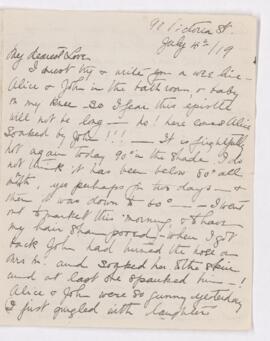 92 Victoria St.
July 4th/19
My dearest Love
I must try & write you a wee line -
Alice & John in the bath room, & baby
on my knee so I fear this epistle
will not be long - no! here comes Alice
soaked by John!!! - It is frightfully
hot again today 90° in the shade. I do
not think it has been below 80° all
mth, yes perhaps for two days - &
then was down to 60° - I went
out to market this morning & to have
my hair shampooed & when I got
back John had turned the hose on
Mrs M. and soaked her to the skin
and at last she spanked him - !
Alice & John were so funny yesterday
I just gurgled with laughter